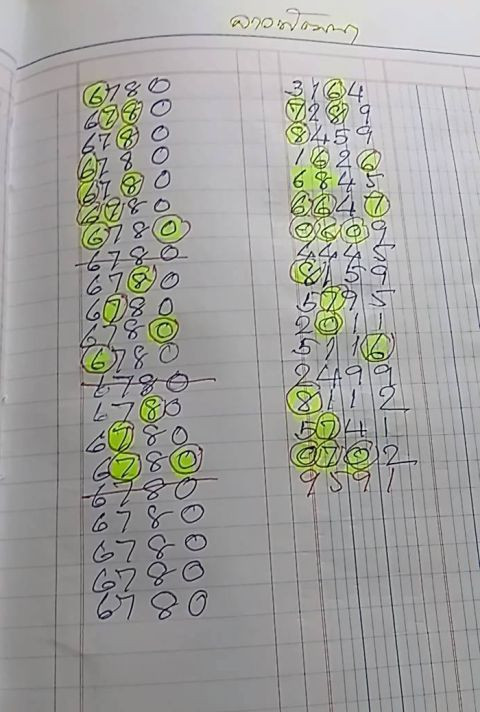 ลาวพัฒนา
6780 3164
6780 7289
6780 8459
6780 1626
6780 6845
6780 6647
6780 0609
6780 4445
6780 8159
6780 5795
6780 2011
6780 5116
6780 2499
6780 8112
6780 5741
6780 0702
6780 9591
6780
6780
6780
6780